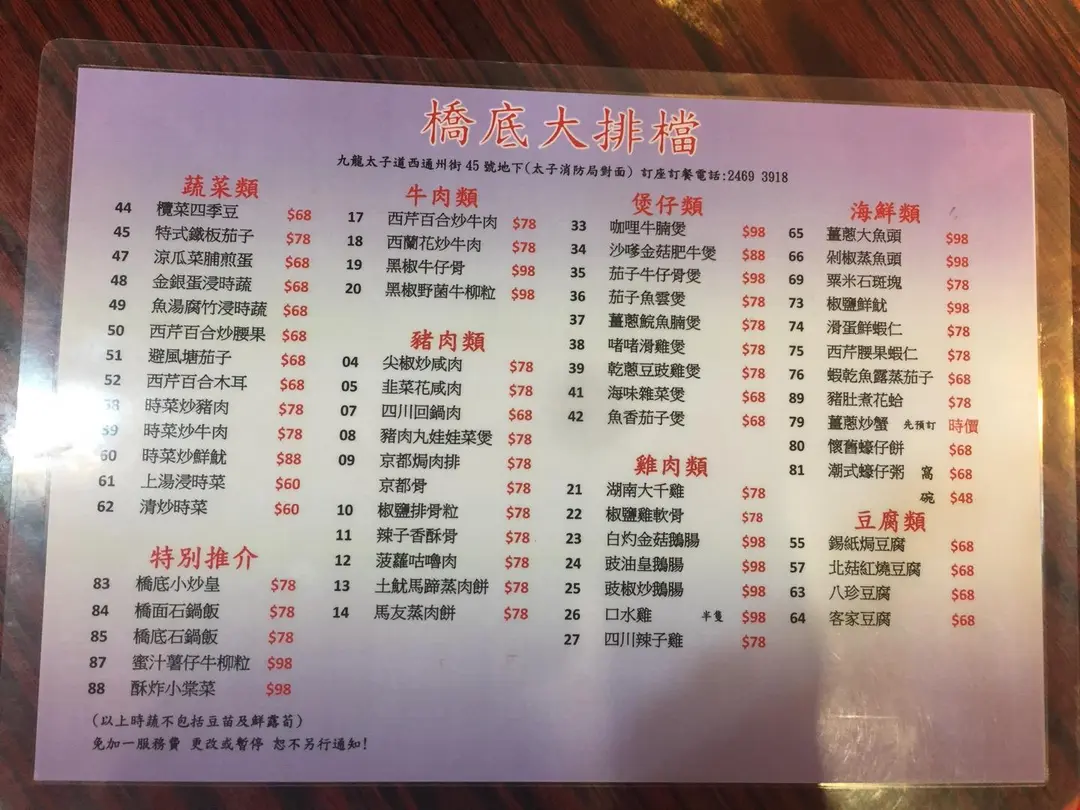 橋底大排檔
九龍太子道西通州街45號地下(太子消防局對面) 訂座訂餐電話:2469 3918
蔬菜類
44 欖菜四季豆 $68
45 特式鐵板茄子 $78
47 涼瓜菜脯煎蛋 $68
48 金銀蛋浸時蔬 $68
49 魚湯腐竹浸時蔬 $68
50 西芹百合炒腰果 $68
51 避風塘茄子 $68
52 西芹百合木耳 $68
58 時菜炒豬肉 $78
59 時菜炒牛肉 $78
60 時菜炒鮮魷 $88
61 上湯浸時菜 $60
62 清炒時菜 $60
特別推介
83 橋底小炒皇 $78
84 橋面石鍋飯 $78
85 橋底石鍋飯 $78
87 蜜汁薯仔牛柳粒 $98
88 酥炸小棠菜 $98
(以上時蔬不包括豆苗及鮮露荀)
免加一服務費 更改或暫停 恕不另行通知!
牛肉類
17 西芹百合炒牛肉 $78
18 西蘭花炒牛肉 $78
19 黑椒牛仔骨 $98
20 黑椒野菌牛柳粒 $98
豬肉類
04 尖椒炒咸肉 $78
05 韭菜花咸肉 $78
07 四川回鍋肉 $68
08 豬肉丸娃娃菜煲 $78
09 京都焗肉排 $78
京都骨 $78
10 椒鹽排骨粒 $78
11 辣子香酥骨 $78
12 菠蘿咕嚕肉 $78
13 土魷馬蹄蒸肉餅 $78
14 馬友蒸肉餅 $78
煲仔類
33 咖哩牛腩煲 $98
34 沙嗲金菇肥牛煲 $88
35 茄子牛仔骨煲 $98
36 茄子魚雲煲 $78
37 薑蔥鯇魚腩煲 $78
38 啫啫滑雞煲 $78
39 乾蔥豆豉雞煲 $78
41 海味雜菜煲 $68
42 魚香茄子煲 $68
雞肉類
21 湖南大千雞 $78
22 椒鹽雞軟骨 $78
23 白灼金菇鵝腸 $98
24 豉油皇鵝腸 $98
25 豉椒炒鵝腸 $98
26 口水雞 半隻 $98
27 四川辣子雞 $78
海鮮類
65 薑蔥大魚頭 $98
66 剁椒蒸魚頭 $98
69 粟米石斑塊 $78
73 椒鹽鮮魷 $98
74 滑蛋鮮蝦仁 $78
75 西芹腰果蝦仁 $78
76 蝦乾魚露蒸茄子 $68
89 豬肚煮花蛤 $78
79 薑蔥炒蟹 先預訂 時價
80 懷舊蠔仔餅 $68
81 潮式蠔仔粥 窩 $68
碗 $48
豆腐類
55 錫紙焗豆腐 $68
57 北菇紅燒豆腐 $68
63 八珍豆腐 $68
64 客家豆腐 $68